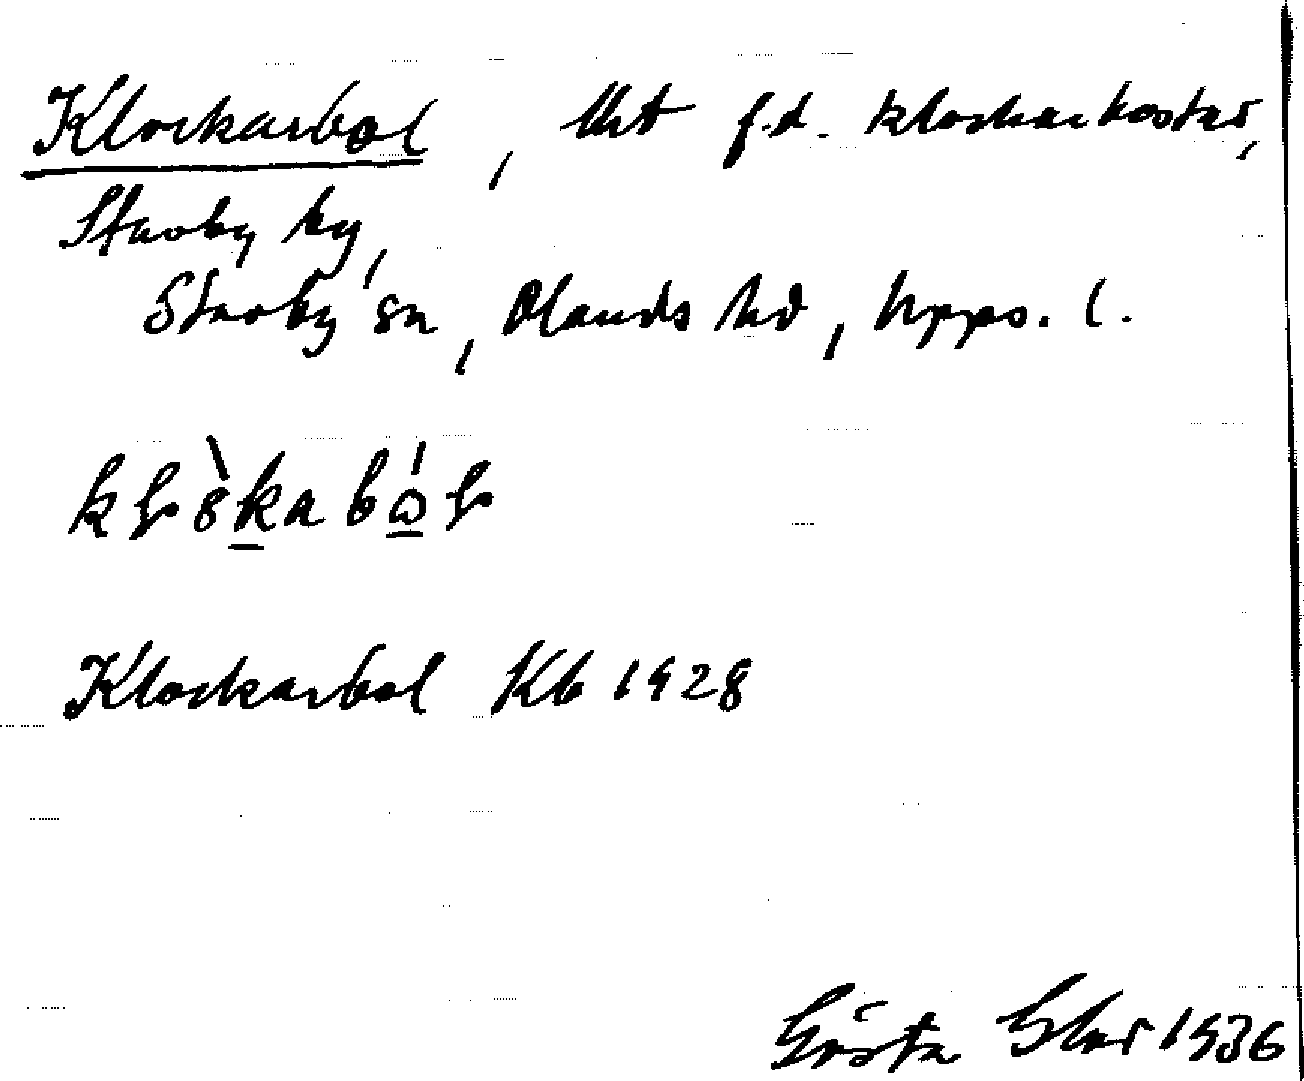 Klockarbol, lht f.d. klockarboställe,
Stavby by,
Stavby sn, Olands hd, Upps. l.
Klockarbol Kb 1928
Gösta 1936